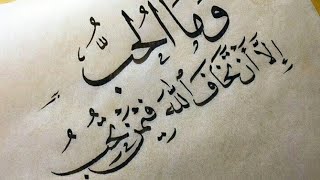 وَمَا الحُبُّ
إلَّا أَنْ تَخَافَ اللّٰهَ فِيْمَنْ تُحِبُّ